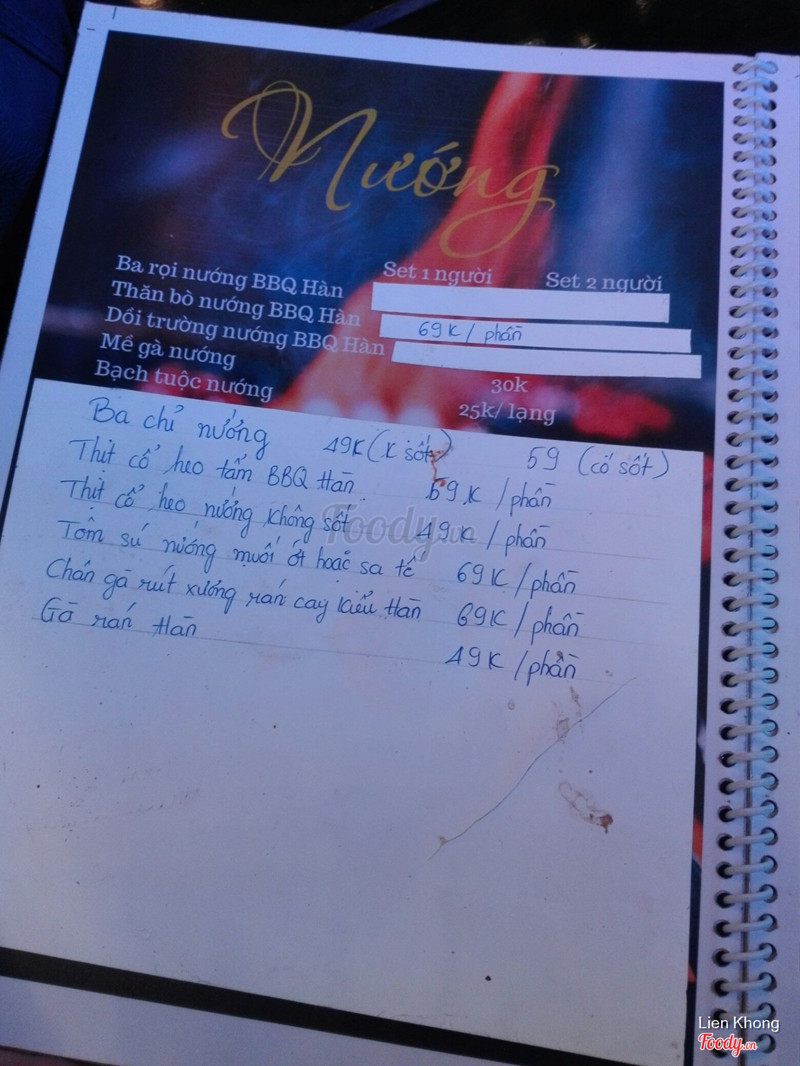 Nướng
Set 1 người Set 2 người
Ba rọi nướng BBQ Hàn
Thăn bò nướng BBQ Hàn 69K / phần
Dồi trường nướng BBQ Hàn
Mề gà nướng 30k
Bạch tuộc nướng 25k/ lạng
Ba chỉ nướng 49K (K sốt) 59 (có sốt)
Thịt cổ heo tẩm BBQ Hàn 69K / phần
Thịt cổ heo nướng không sốt 49K / phần
Tôm sú nướng muối ớt hoặc sa tế 69K / phần
Chân gà rút xương rán cay kiểu Hàn 69K / phần
Gà rán Hàn 49K / phần
Foody.vn
Lien Khong
Foody.vn